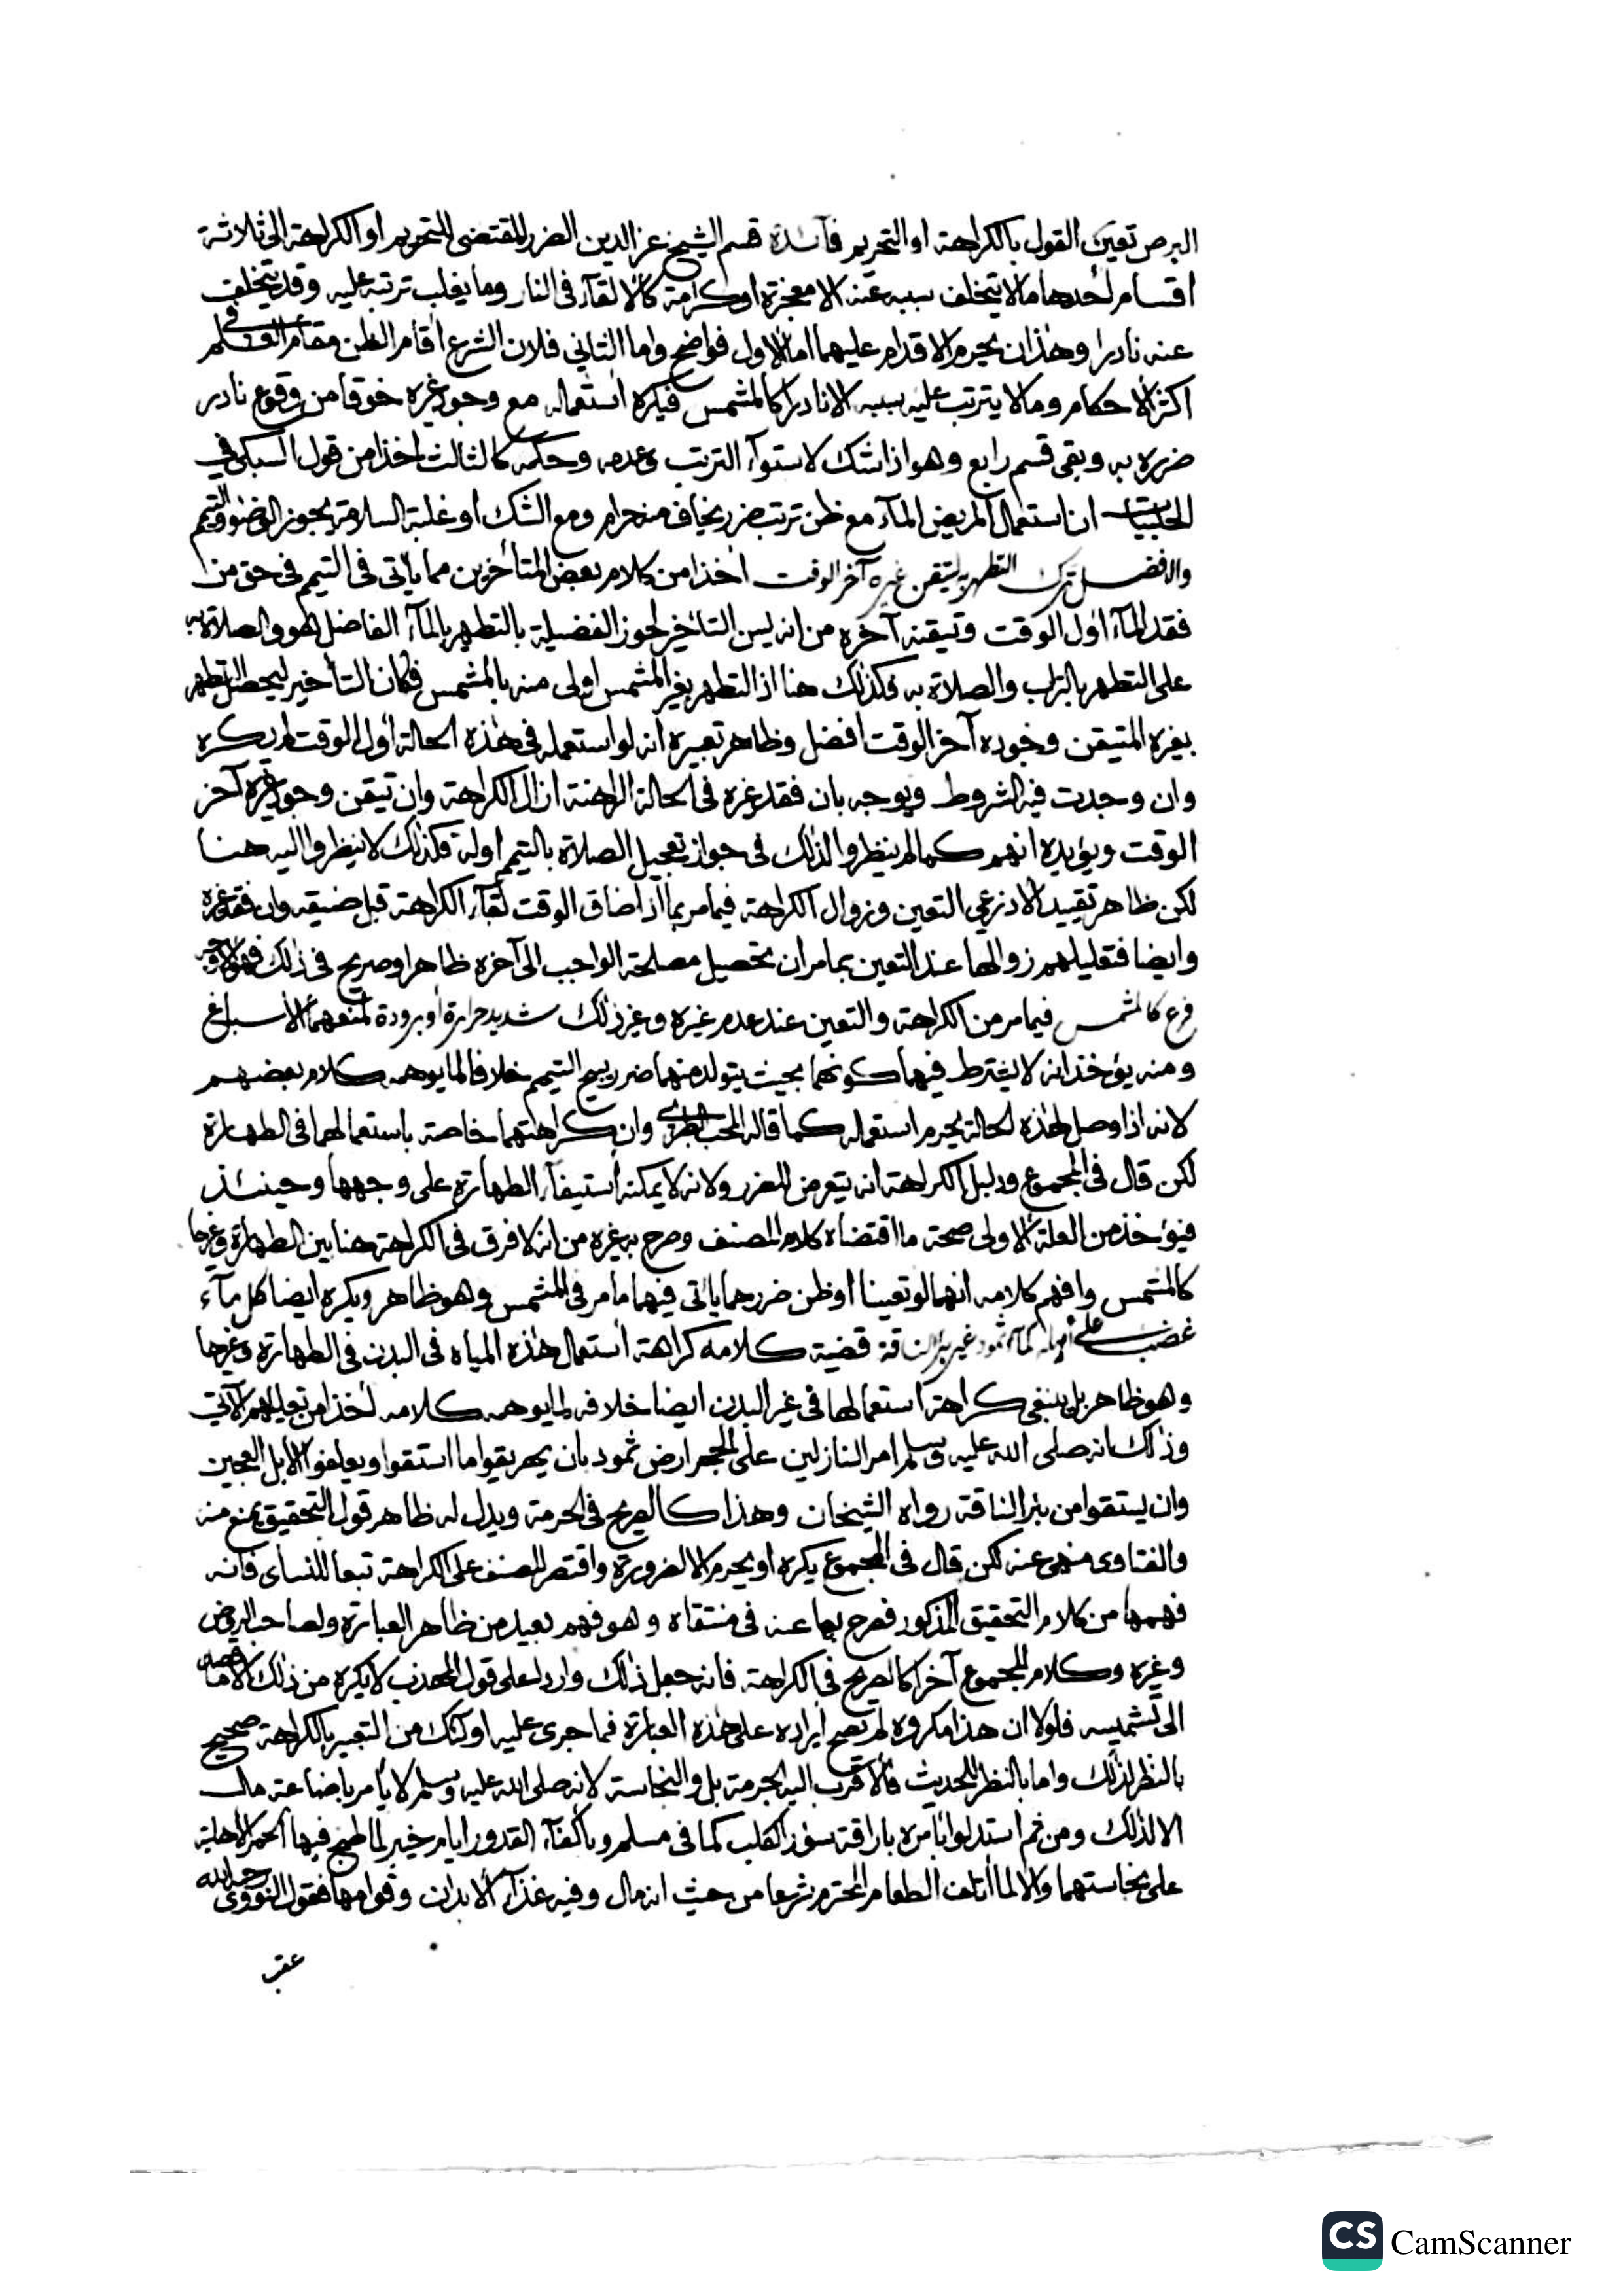 البرص تعين القول بالكراهة او التحريم فآئدة قسم الشيخ عز الدين الضرر المقتضى للتحريم او الكراهة الى ثلاثة
اقسام احدها ما لا يتخلف سببه عنه الا معجزة او كرامة كالالقآء فى النار وما يغلب ترتبه عليه وقد يتخلف
عنه نادرا وهذان يحرم الاقدام عليهما اما الاول فواضح واما الثاني فلان الشرع اقام الظن مقام العلم في
اكثر الاحكام وما لا يترتب عليه سببه الا نادرا كالمشمس فيكره استعماله مع وجود غيره خوفا من وقوع نادر
ضرره به وبقى قسم رابع وهو اذا شك لاستوآء الترتب وعدمه وحكمه كالثالث اخذا من قول السبكى في
الحلبيات ان استعمال المريض المآء مع ظن ترتب ضرر يخاف منه حرام ومع الشك او غلبة السلامة يجوز الوضوء والتيمم
والافضل ترك التطهر به لمتيقن غيره آخر الوقت اخذا من كلام بعض المتأخرين مما يأتى فى التيمم فى حق من
فقد المآء اول الوقت وتيقنه آخره من انه يسن التأخير لحوز الفضيلة بالتطهر بالمآء الفاضل هو والصلاة به
على التطهر بالتراب والصلاة به فكذلك هنا اذ التطهر بغير المشمس اولى منه بالمشمس فكان التأخير ليحصل التطهر
بغيره المتيقن وجوده آخر الوقت افضل وظاهر تعبيره انه لو استعمله فى هذه الحالة اول الوقت لم يكره
وان وجدت فيه الشروط ويوجه بان فقد غيره فى الحالة الراهنة ازال الكراهة وان تيقن وجود غيره آخر
الوقت ويؤيده انهم كما لم ينظروا لذلك فى جواز تعجيل الصلاة بالتيمم اوله فكذلك لا ينظروا اليه هنا
لكن ظاهر تقييد الاذرعي التعين وزوال الكراهة فيما مر بما اذا ضاق الوقت بقآء الكراهة قبل ضيقه وان فقد غيره
وايضا فتعليلهم زوالها عند التعين بما مر ان تحصيل مصلحة الواجب الى آخره ظاهر او صريح فى ذلك فهو الاوجه
فرع كالمشمس فيما مر من الكراهة والتعين عند عدم غيره وغير ذلك شديد حرارة او برودة لمنعهما الاسباغ
ومنه يؤخذ انه لا يشترط فيهما كونهما بحيث يتولد منهما ضرر يبيح التيمم خلافا لما يوهمه كلام بعضهم
لانه اذا وصل لهذه الحالة يحرم استعماله كما قاله المحب الطبري وان كراهتهما خاصة باستعمالهما فى الطهارة
لكن قال فى المجموع ودليل الكراهة انه يتعرض للضرر ولانه لا يمكنه استيفآء الطهارة على وجهها وحينئذ
فيؤخذ من العلة الاولى صحة ما اقتضاه كلام المصنف وصرح به غيره من انه لا فرق فى الكراهة هنا بين الطهارة وغيرها
كالمشمس وافهم كلامه انهما لو تعينا او ظن ضررهما يأتى فيهما ما مر فى المشمس وهو ظاهر ويكره ايضا كل مآء
غضب على اهله كمآء ثمود غير بئر الناقة قضية كلامه كراهة استعمال هذه المياه فى البدن فى الطهارة وغيرها
وهو ظاهر بل ينبغى كراهة استعمالها فى غير البدن ايضا خلافه لما يوهمه كلامه اخذا من تعليلهم الآتي
وذلك انه صلى الله عليه وسلم امر النازلين على الحجر ارض ثمود بان يهريقوا ما استقوا ويعلفوا الابل العجين
وان يستقوا من بئر الناقة رواه الشيخان وهذا كالصريح فى الحرمة ويدل له ظاهر قول التحقيق يمنع منه
والفتاوى منهى عنه لكن قال فى المجموع يكره او يحرم الا لضرورة واقتصر المصنف على الكراهة تبعا للنسائى فانه
فهمها من كلام التحقيق المذكور فصرح بها عنه فى منتقاه وهو فهم بعيد من ظاهر العبارة ولصاحب الروض
وغيره وكلام المجموع آخرا كالصريح فى الكراهة فانه جعل ذلك واردا على قول المهذب لا يكره من ذلك الا ما قصد
الى تشميسه فلولا ان هذا مكروه لم يصح ايراده على هذه العبارة فما جرى عليه اولئك من التعبير بالكراهة صحيح
بالنظر لذلك واما بالنظر للحديث فالاقرب اليه الحرمة بل والنجاسة لانه صلى الله عليه وسلم لا يأمر باضاعة مال
الا لذلك ومن ثم استدلوا بأمره باراقة سؤر الكلب كما فى مسلم وبإكفآء القدور ايام خيبر لما طبخ فيها الحمر الاهلية
على نجاستهما والا لما اتلف الطعام المحترم شرعا من حيث انه مال وفيه غذآء الابدان وقوامها فقول النووى رحمه الله
عقب
CS CamScanner